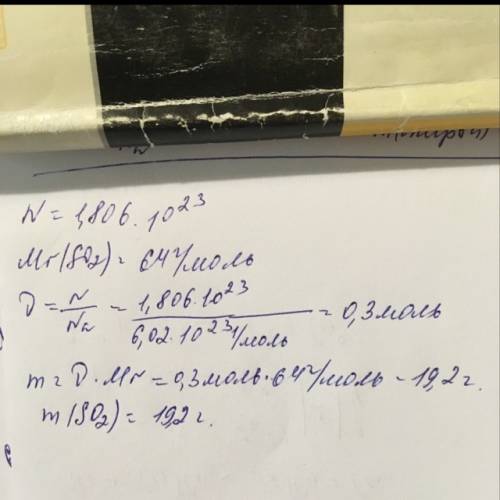 N = 1,806 · 10²³
Mr(SO₂) = 64 г/моль
D = N/Nₐ = 1,806·10²³/6,02·10²³ 1/моль = 0,3 моль
m = D · Mr = 0,3 моль · 64 г/моль = 19,2 г.
m(SO₂) = 19,2 г.